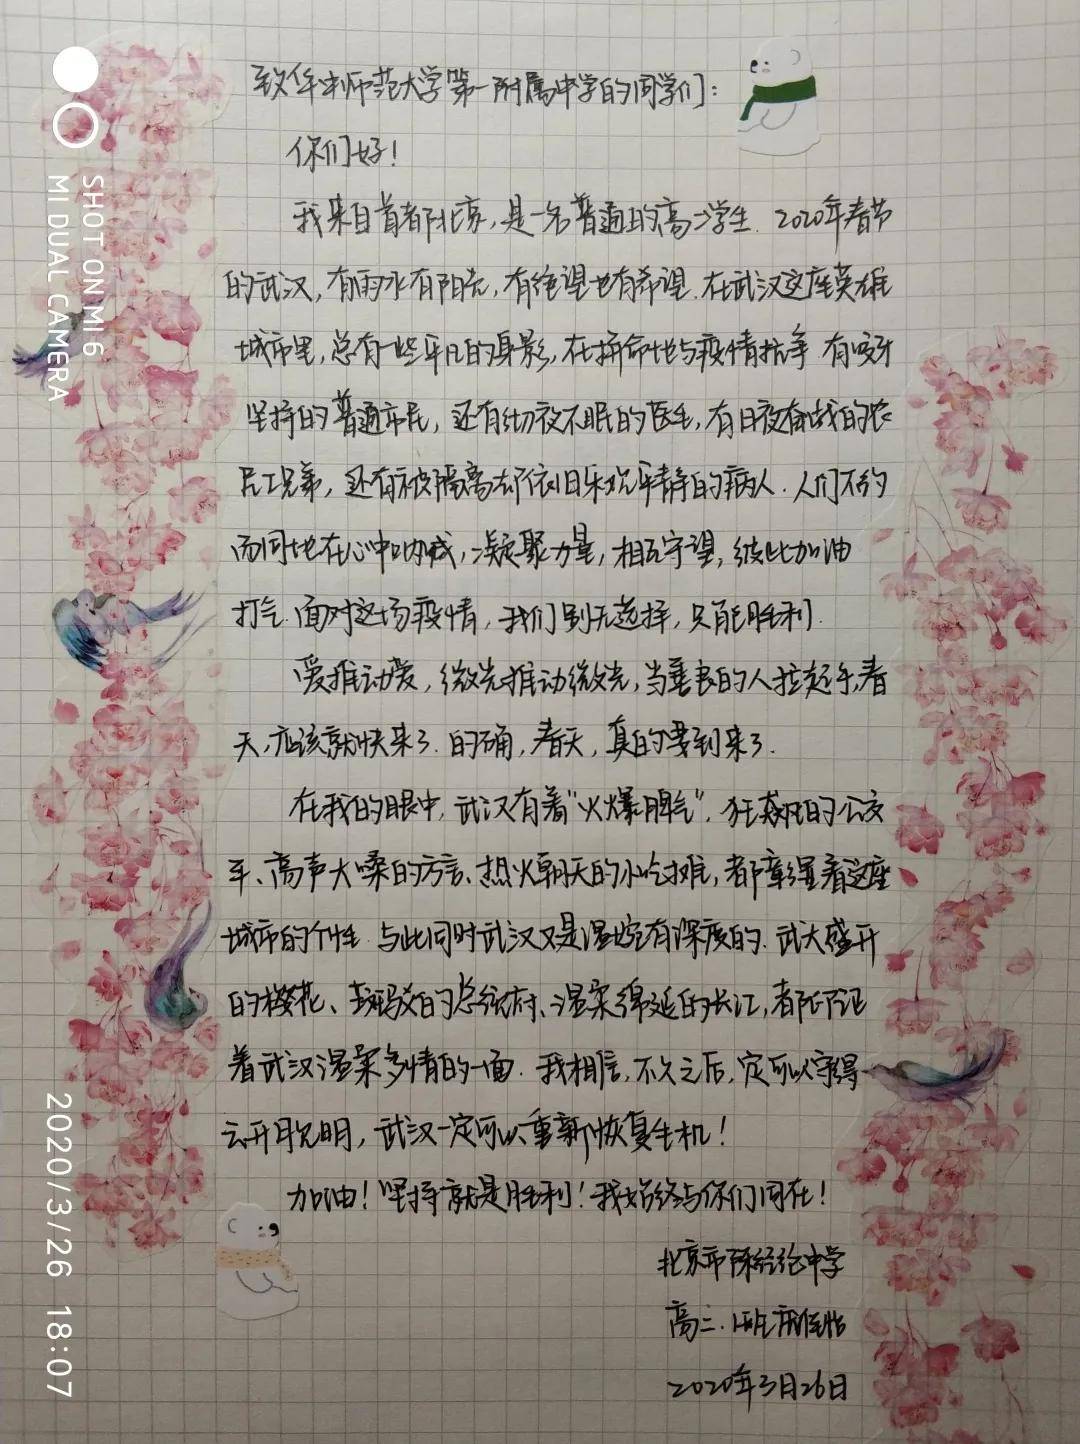 致华中师范大学第一附属中学的同学们：
你们好！
我来自首都北京，是一名普通的高二学生.2020年春节
的武汉，有雨水有阳光，有绝望也有希望.在武汉这座英雄
城市里，总有一些平凡的身影，在拼命地与疫情抗争 有咬牙
坚持的普通市民，还有彻夜不眠的医生，有日夜奋战的农
民工兄弟，还有被隔离却依旧乐观平静的病人.人们不约
而同地在心中呐喊，凝聚力量，相互守望，彼此加油
打气.面对这场疫情，我们别无选择，只能胜利.
爱推动爱，微光推动微光，当善良的人拉起手，春
天，应该就快来了.的确，春天，真的要到来了.
在我的眼中，武汉有着“火爆脾气”，狂飙的公交
车、高声大嗓的方言、热火朝天的小吃摊，都彰显着这座
城市的个性.与此同时武汉又是温婉有深度的.武大盛开
的樱花、斑驳的总统府、温柔绵延的长江，都印证
着武汉温柔多情的一面.我相信，不久之后，定可以守得
云开月见明，武汉一定可以重新恢复生机！
加油！坚持就是胜利！我始终与你们同在！
北京市陈经纶中学
高二.
2020年3月26日
SHOT ON MI 6
MI DUAL CAMERA
2020/3/26 18:07